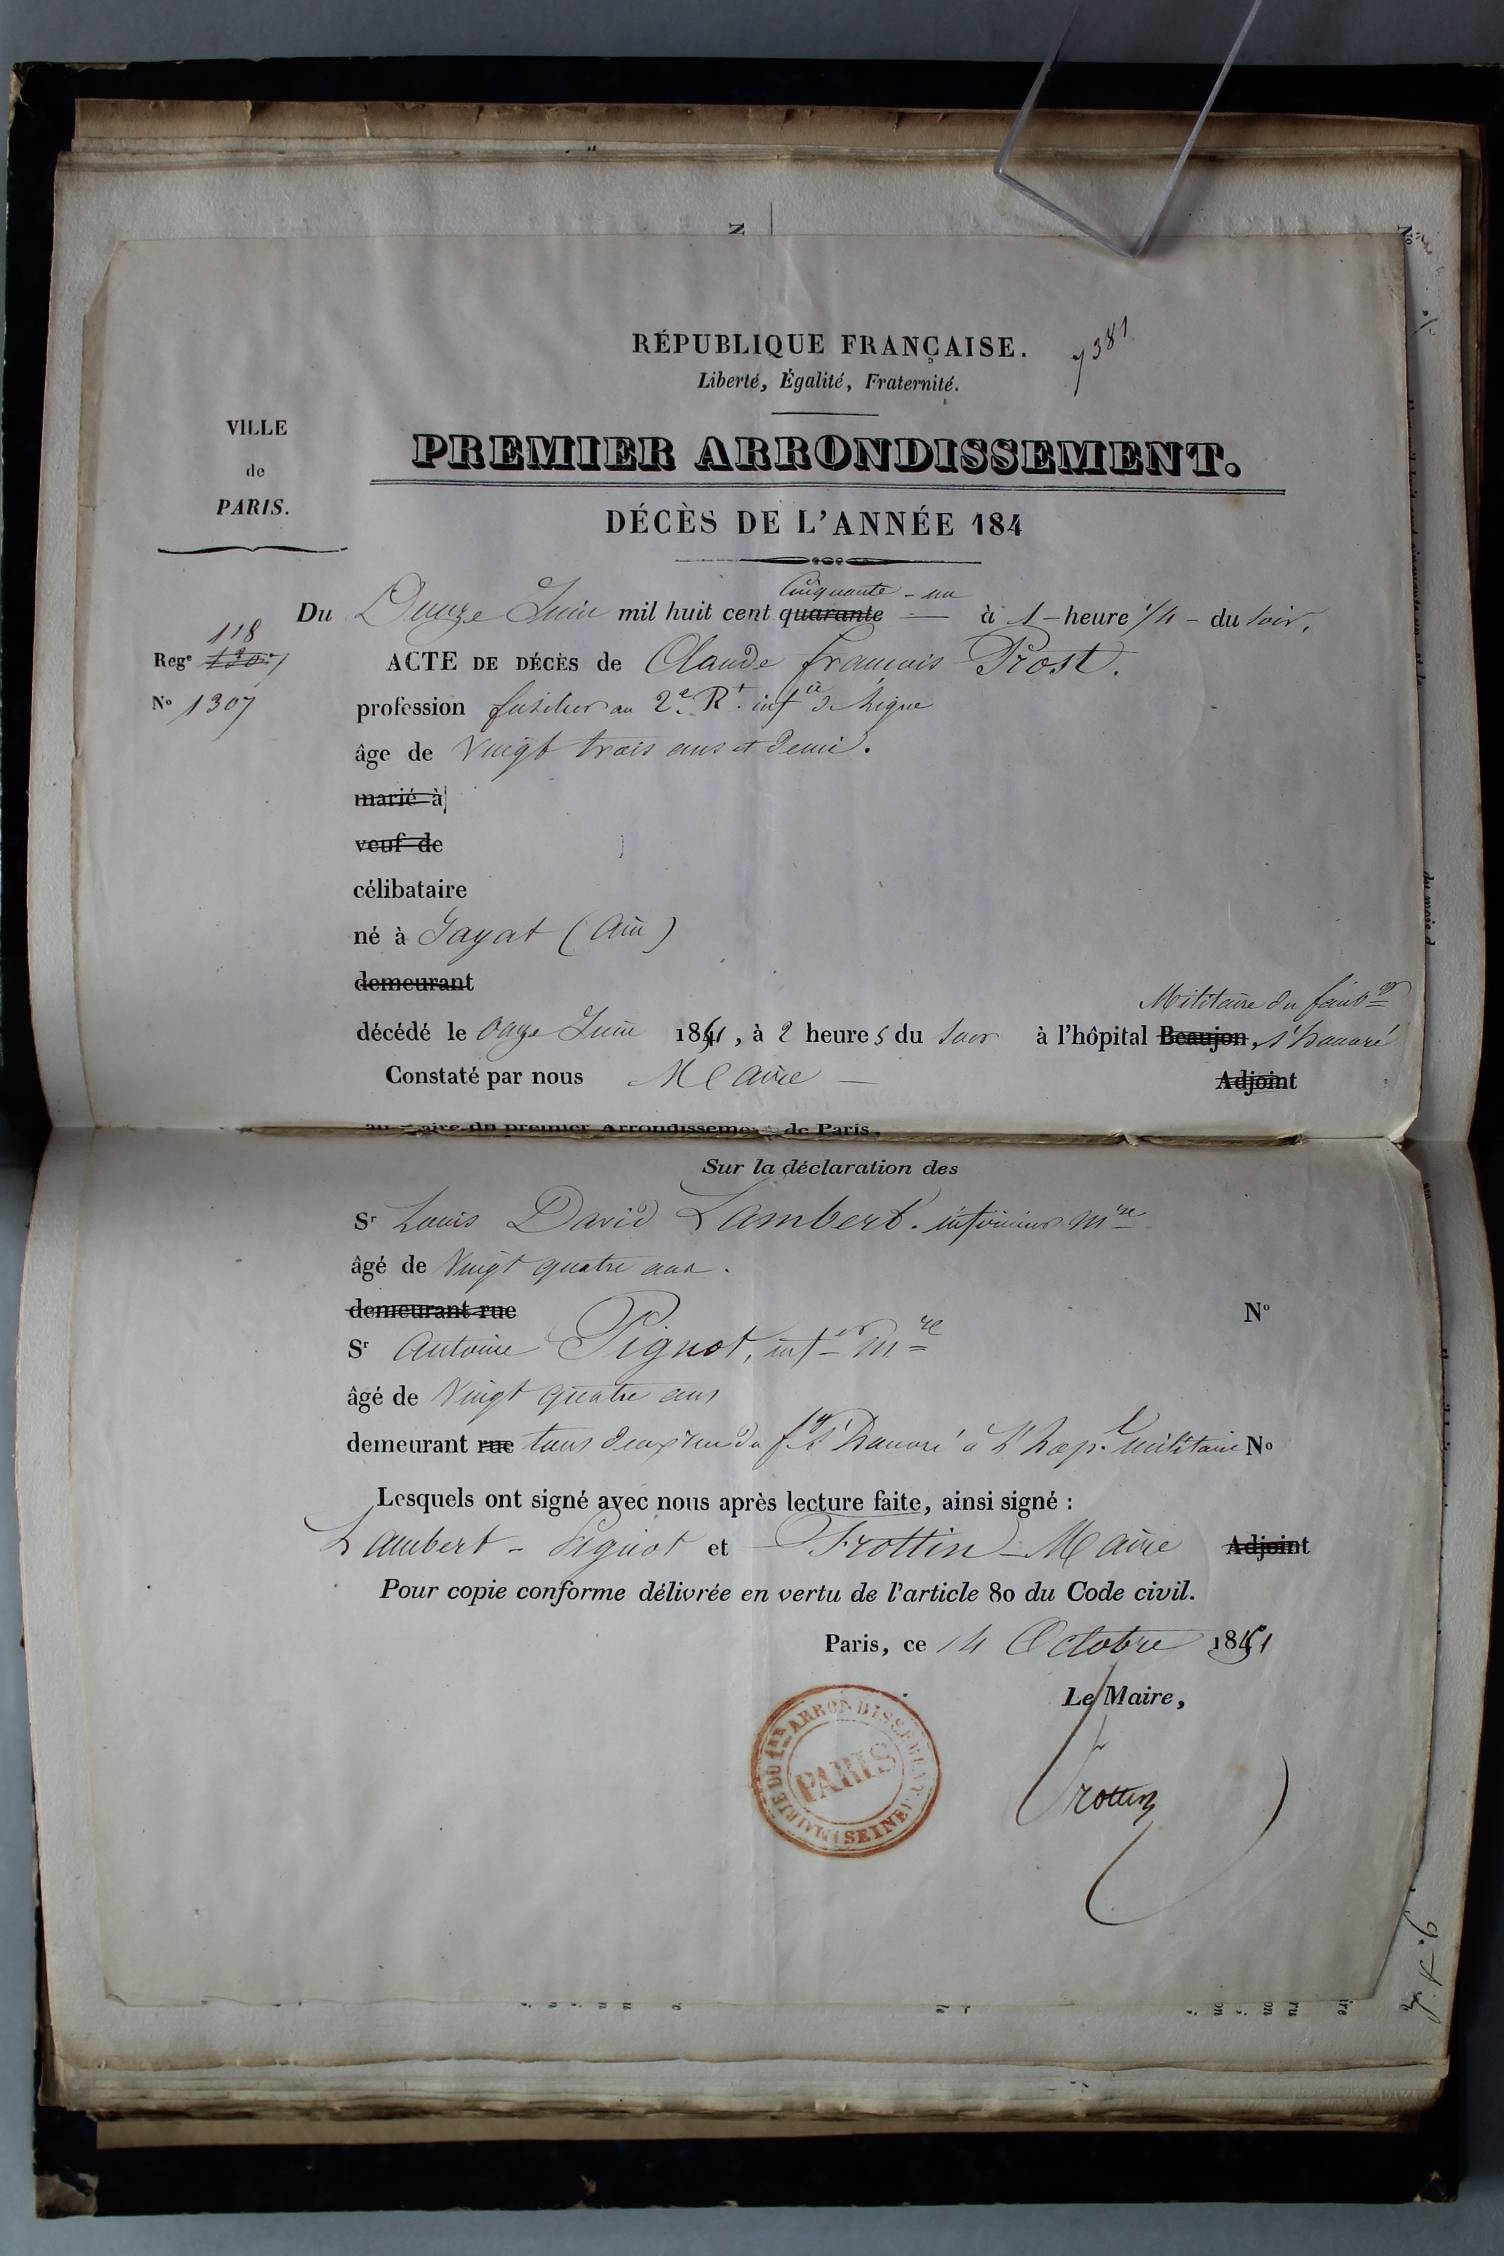 RÉPUBLIQUE FRANÇAISE.
7381
Liberté, Égalité, Fraternité.
VILLE
de
PARIS.
PREMIER ARRONDISSEMENT.
DÉCÈS DE L'ANNÉE 184
Cinquante - un
Du Douze Juin mil huit cent quarante — à 1 - heure 1/4 - du soir.
118
Rege 1307
ACTE DE DÉCÈS de Claude françois Prost.
No 1307
profession fusilier au 2e Rt infie de ligne
âge de Vingt trois ans et demi.
marié à
veuf de
célibataire
né à Jayat (Ain)
demeurant
Militaire du faubg
décédé le Onze Juin 1851, à 2 heures du soir à l'hôpital Beaujon, St honoré
Constaté par nous Maire — Adjoint
au Maire du premier Arrondissement de Paris.
Sur la déclaration des
Sr Louis David Lambert. infirmier mre
âgé de Vingt quatre ans.
demeurant rue No
Sr Antoine Pignot, infer mre
âgé de Vingt quatre ans
demeurant rue tous deux rue du fg St honoré à l'hopl militaire No
Lesquels ont signé avec nous après lecture faite, ainsi signé :
Lambert - Pignot et Frottin - Maire Adjoint
Pour copie conforme délivrée en vertu de l'article 80 du Code civil.
Paris, ce 14 Octobre 1851
Le Maire,
Frottin
MAIRIE DU 1ER ARRONDISSEMENT
PARIS
(SEINE)